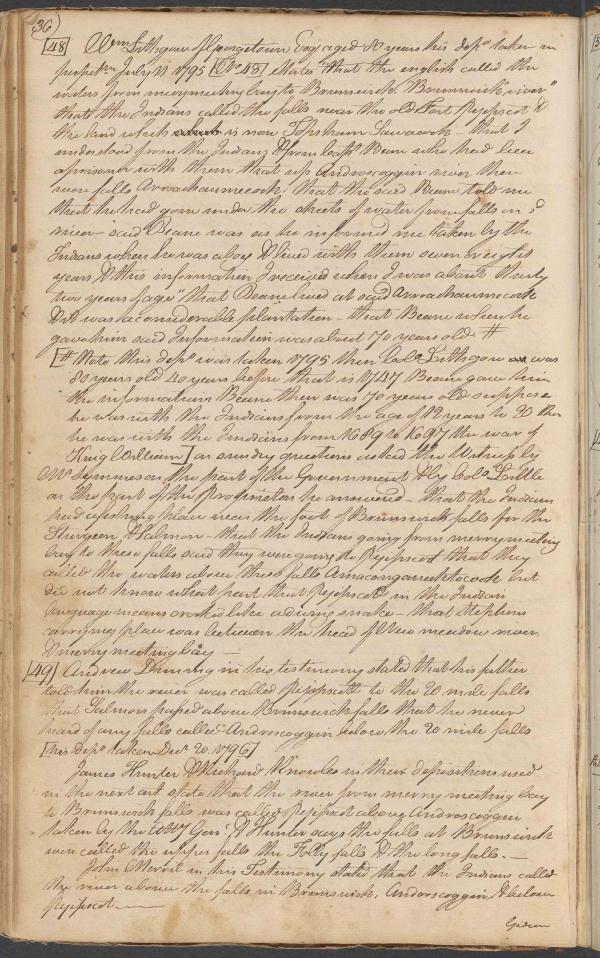 36
[48] Wm Lithgow of Georgetown Esq aged 80 years his depo taken in
perpetm July 11 1795 [No 48] States "that the english called the
waters from merrymeeting bay to Brunswick "Brunswick river"
that the Indians called the falls near the old Fort Pejepscot &
the land which is now Topsham Sawacook - that I
understood from the Indians & from Capt Beane who had been
a prisoner with them that up Androscoggin river there
were falls Arrockaumecook; that the said Beane told me
that he had gone under the sheets of water from falls in sd
river - said Beane was as he informed me taken by the
Indians when he was a boy & lived with them seven or eight
years & this information I received when I was about thirty
two years of age" that Beane lived at said Arrockaumecook
& it was a considerable plantation - that Beane when he
gave him said Information was about 70 years old #
[# Note this depo was taken 1795 then Colo Lithgow was
80 years old 40 years before that is 1747 Beane gave him
the information Beane then was 70 years old suppose
he was with the Indians from the age of 12 years to 20 then
he was with the Indians from 1689 to 1697 the war of
King William] on sunday questions asked the Witness by
Mr Symmes on the part of the Government & by Colo Little
on the part of the Proprietors he answered - that the Indians
had a fishing place near the foot of Brunswick falls for the
Sturgeon & Salmon - that the Indians going from merrymeeting
bay to these falls said they were going to Pejepscot that they
called the waters above these falls Amacongamtocook but
did not know what part that Pejepscot in the Indian
language means crooked like a diving snake - that Stephens
carrying place was between the head of New meadow river
& merrymeeting bay —
[49] Andrew Dunning in his testimony stated that his father
told him the river was called Pejepscott to the 20 mile falls
that Salmon passed above Brunswick falls that he never
heard of any falls called Androscoggin below the 20 mile falls
[his Depo taken Decr 20. 1796]
James Hunter & Richard Knowles in their depositions used
in the next act state that the river from merry meeting bay
to Brunswick falls was called Pejepscot above Androscoggin
taken by the Atty Gen; & Hunter says the falls at Brunswick
were called the upper falls the Folly falls & the long falls. —
John Merrill in his Testimony stated that the Indians called
the river above the falls in Brunswick, Androscoggin & below
Pejepscot —